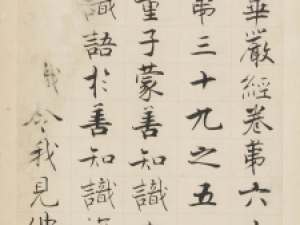 華嚴經卷第六十
第三十九之五
童子蒙善知識
識語於善知識
令我見佛